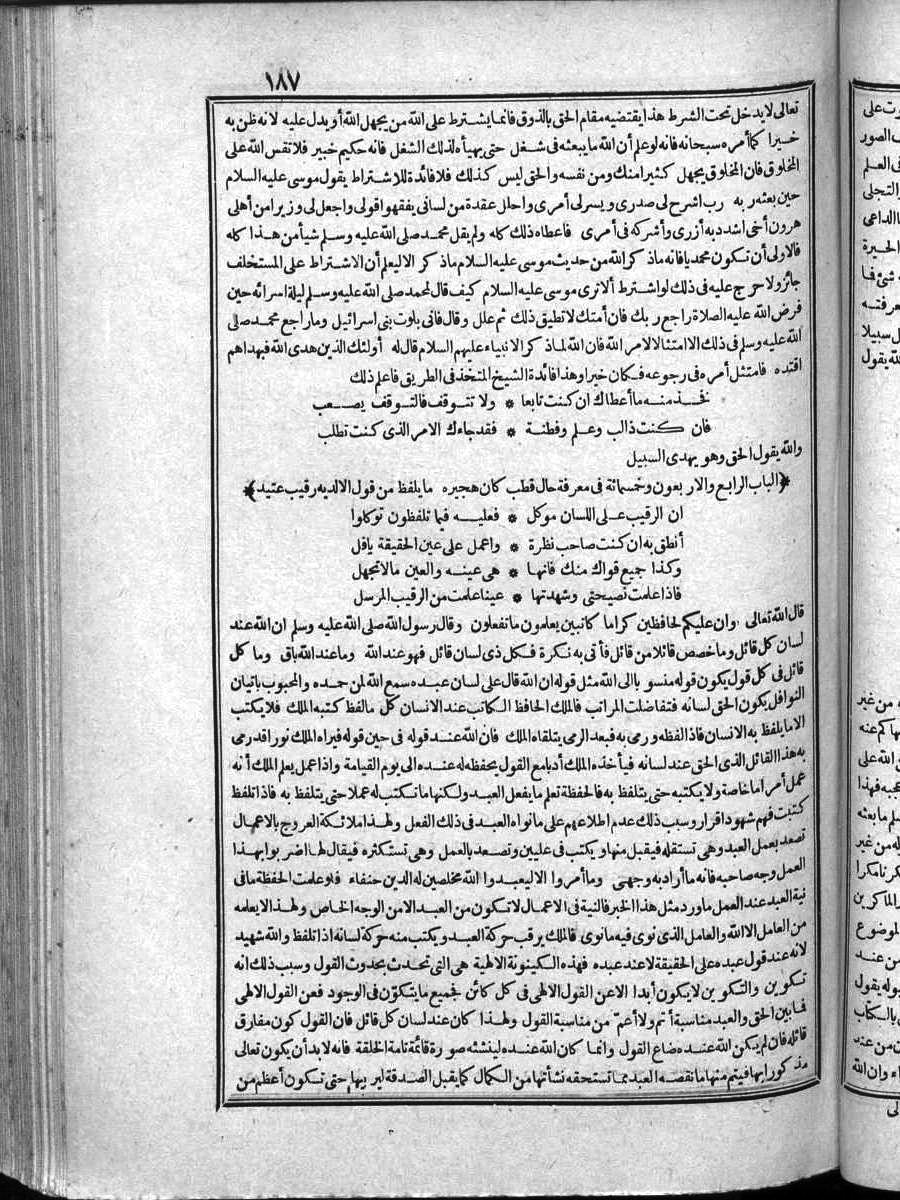 ١٨٧
تعالى لا يدخل تحت الشرط هذا يقتضيه مقام الحق بالذوق فانما يشترط على الله من يجهل الله أو يدل عليه لانه ظن به
خيرا كما أمره سبحانه فانه لو علم أن الله ما يبعثه فى شغل حتى يهيأه لذلك الشغل فانه حكيم خبير فلا تقس الله على
المخلوق فان المخلوق يجهل كثيرا منك ومن نفسه والحق ليس كذلك فلا فائدة للاشتراط يقول موسى عليه السلام
حين بعثه ربه رب اشرح لى صدرى ويسر لى أمرى واحلل عقدة من لسانى يفقهوا قولى واجعل لى وزيرا من أهلى
هرون أخى اشدد به أزرى وأشركه فى أمرى فاعطاه ذلك كله ولم يقل محمد صلى الله عليه وسلم شيأ من هذا كله
فالاولى أن تكون محمديا فانه ما ذكر الله من حديث موسى عليه السلام ما ذكر الا ليعلم أن الاشتراط على المستخلف
جائز ولا حرج عليه فى ذلك لو اشترط ألا ترى موسى عليه السلام كيف قال لمحمد صلى الله عليه وسلم ليلة اسرائه حين
فرض الله عليه الصلاة راجع ربك فان أمتك لا تطيق ذلك ثم علل وقال فانى بلوت بنى اسرائيل وما راجع محمد صلى
الله عليه وسلم فى ذلك الا امتثالا لامر الله فان الله لما ذكر الانبياء عليهم السلام قال له أولئك الذين هدى الله فبهداهم
اقتده فامتثل أمره فى رجوعه فكان خيرا وهذا فائدة الشيخ المتخذ فى الطريق فاعلم ذلك
فخذ منه ما أعطاك ان كنت تابعا * ولا تتوقف فالتوقف يصعب
فان كنت ذا لب وعلم وفطنة * فقد جاءك الامر الذى كنت تطلب
والله يقول الحق وهو يهدى السبيل
﴿الباب الرابع والاربعون وخمسمائة فى معرفة حال قطب كان هجيره ما يلفظ من قول الا لديه رقيب عتيد﴾
ان الرقيب على اللسان موكل * فعليه فيما تلفظون توكلوا
أنطق به ان كنت صاحب نظرة * واعمل على عين الحقيقة يا فل
وكذا جميع قواك منك فانها * هى عينه والعين مالا تجهل
فاذا علمت نصيحتى وشهدتها * عينا علمت من الرقيب المرسل
قال الله تعالى وان عليكم لحافظين كراما كاتبين يعلمون ما تفعلون وقال رسول الله صلى الله عليه وسلم ان الله عند
لسان كل قائل وما خصص قائلا من قائل فأتى به نكرة فكل ذى لسان قائل فهو عند الله وما عند الله باق وما كل
قائل فى كل قول يكون قوله منسوبا الى الله مثل قوله ان الله قال على لسان عبده سمع الله لمن حمده والمحبوب باتيان
النوافل يكون الحق لسانه فتفاضلت المراتب فالملك الحافظ الكاتب عند الانسان كل ما لفظ كتبه الملك فلا يكتب
الا ما يلفظ به الانسان فاذا لفظه ورمى به فبعد الرمى يتلقاه الملك فان الله عند قوله فى حين قوله فيراه الملك نورا قد رمى
به هذا القائل الذى الحق عند لسانه فيأخذه الملك أدبا مع القول يحفظه له عنده الى يوم القيامة واذا عمل يعلم الملك أنه
عمل أمرا ما خاصة ولا يكتبه حتى يتلفظ به فالحفظة تعلم ما يفعل العبد ولكنها ما تكتب له عملا حتى يتلفظ به فاذا تلفظ
كتبت فهم شهود اقرار وسبب ذلك عدم اطلاعهم على ما نواه العبد فى ذلك الفعل ولهذا ملائكة العروج بالاعمال
تصعد بعمل العبد وهى تستقله فيقبل منها ويكتب فى عليين وتصعد بالعمل وهى تستكثره فيقال لها اضربوا بهذا
العمل وجه صاحبه فانه ما أراد به وجهى وما أمروا الا ليعبدوا الله مخلصين له الدين حنفاء فلو علمت الحفظة ما فى
نية العبد عند العمل ما ورد مثل هذا الخبر فالنية فى الاعمال لا تكون من العبد الا من الوجه الخاص ولهذا لا يعلمه
من العامل الا الله والعامل الذى نوى فيه ما نوى فالملك يرقب حركة العبد ويكتب منه حركة لسانه اذا تلفظ والله شهيد
لانه عند قول عبده على الحقيقة لا عند عبده فهذه الكينونة الالهية هى التى تحدث بحدوث القول وسبب ذلك انه
تكوين والتكوين لا يكون أبدا الا عن القول الالهى فى كل كائن فجميع ما يتكوّن فى الوجود فعن القول الالهى
فما بين الحق والعبد مناسبة أتم ولا أعمّ من مناسبة القول ولهذا كان عند لسان كل قائل فان القول كون مفارق
قائله فان لم يكن الله عنده ضاع القول وانما كان الله عنده لينشئه صورة قائمة تامة الخلقة فانه لا بد أن يكون تعالى
مذكورا بها فيتم منها ما نقصه العبد مما تستحقه نشأتها من الكمال كما يقبل الصدقة ليربيها حتى تكون أعظم من